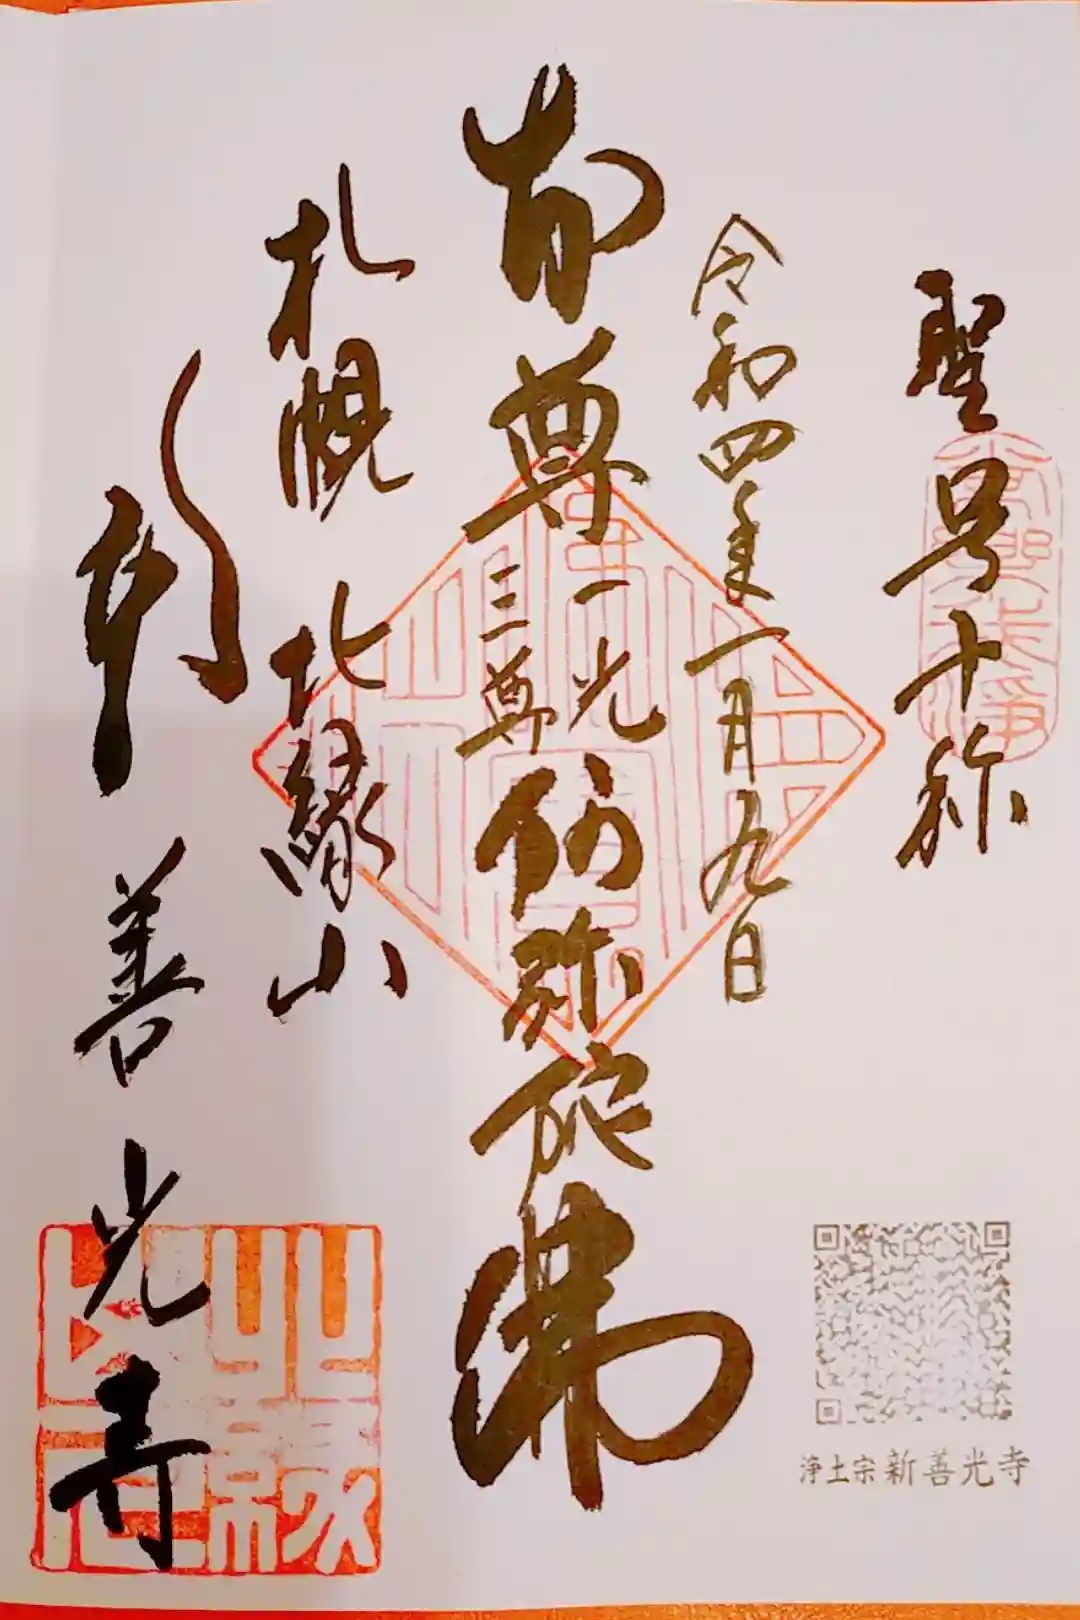 聖号十称
令和四年一月九日
本尊
一光
三尊
阿弥陀佛
札幌
北縁山
新善光寺
浄土宗新善光寺